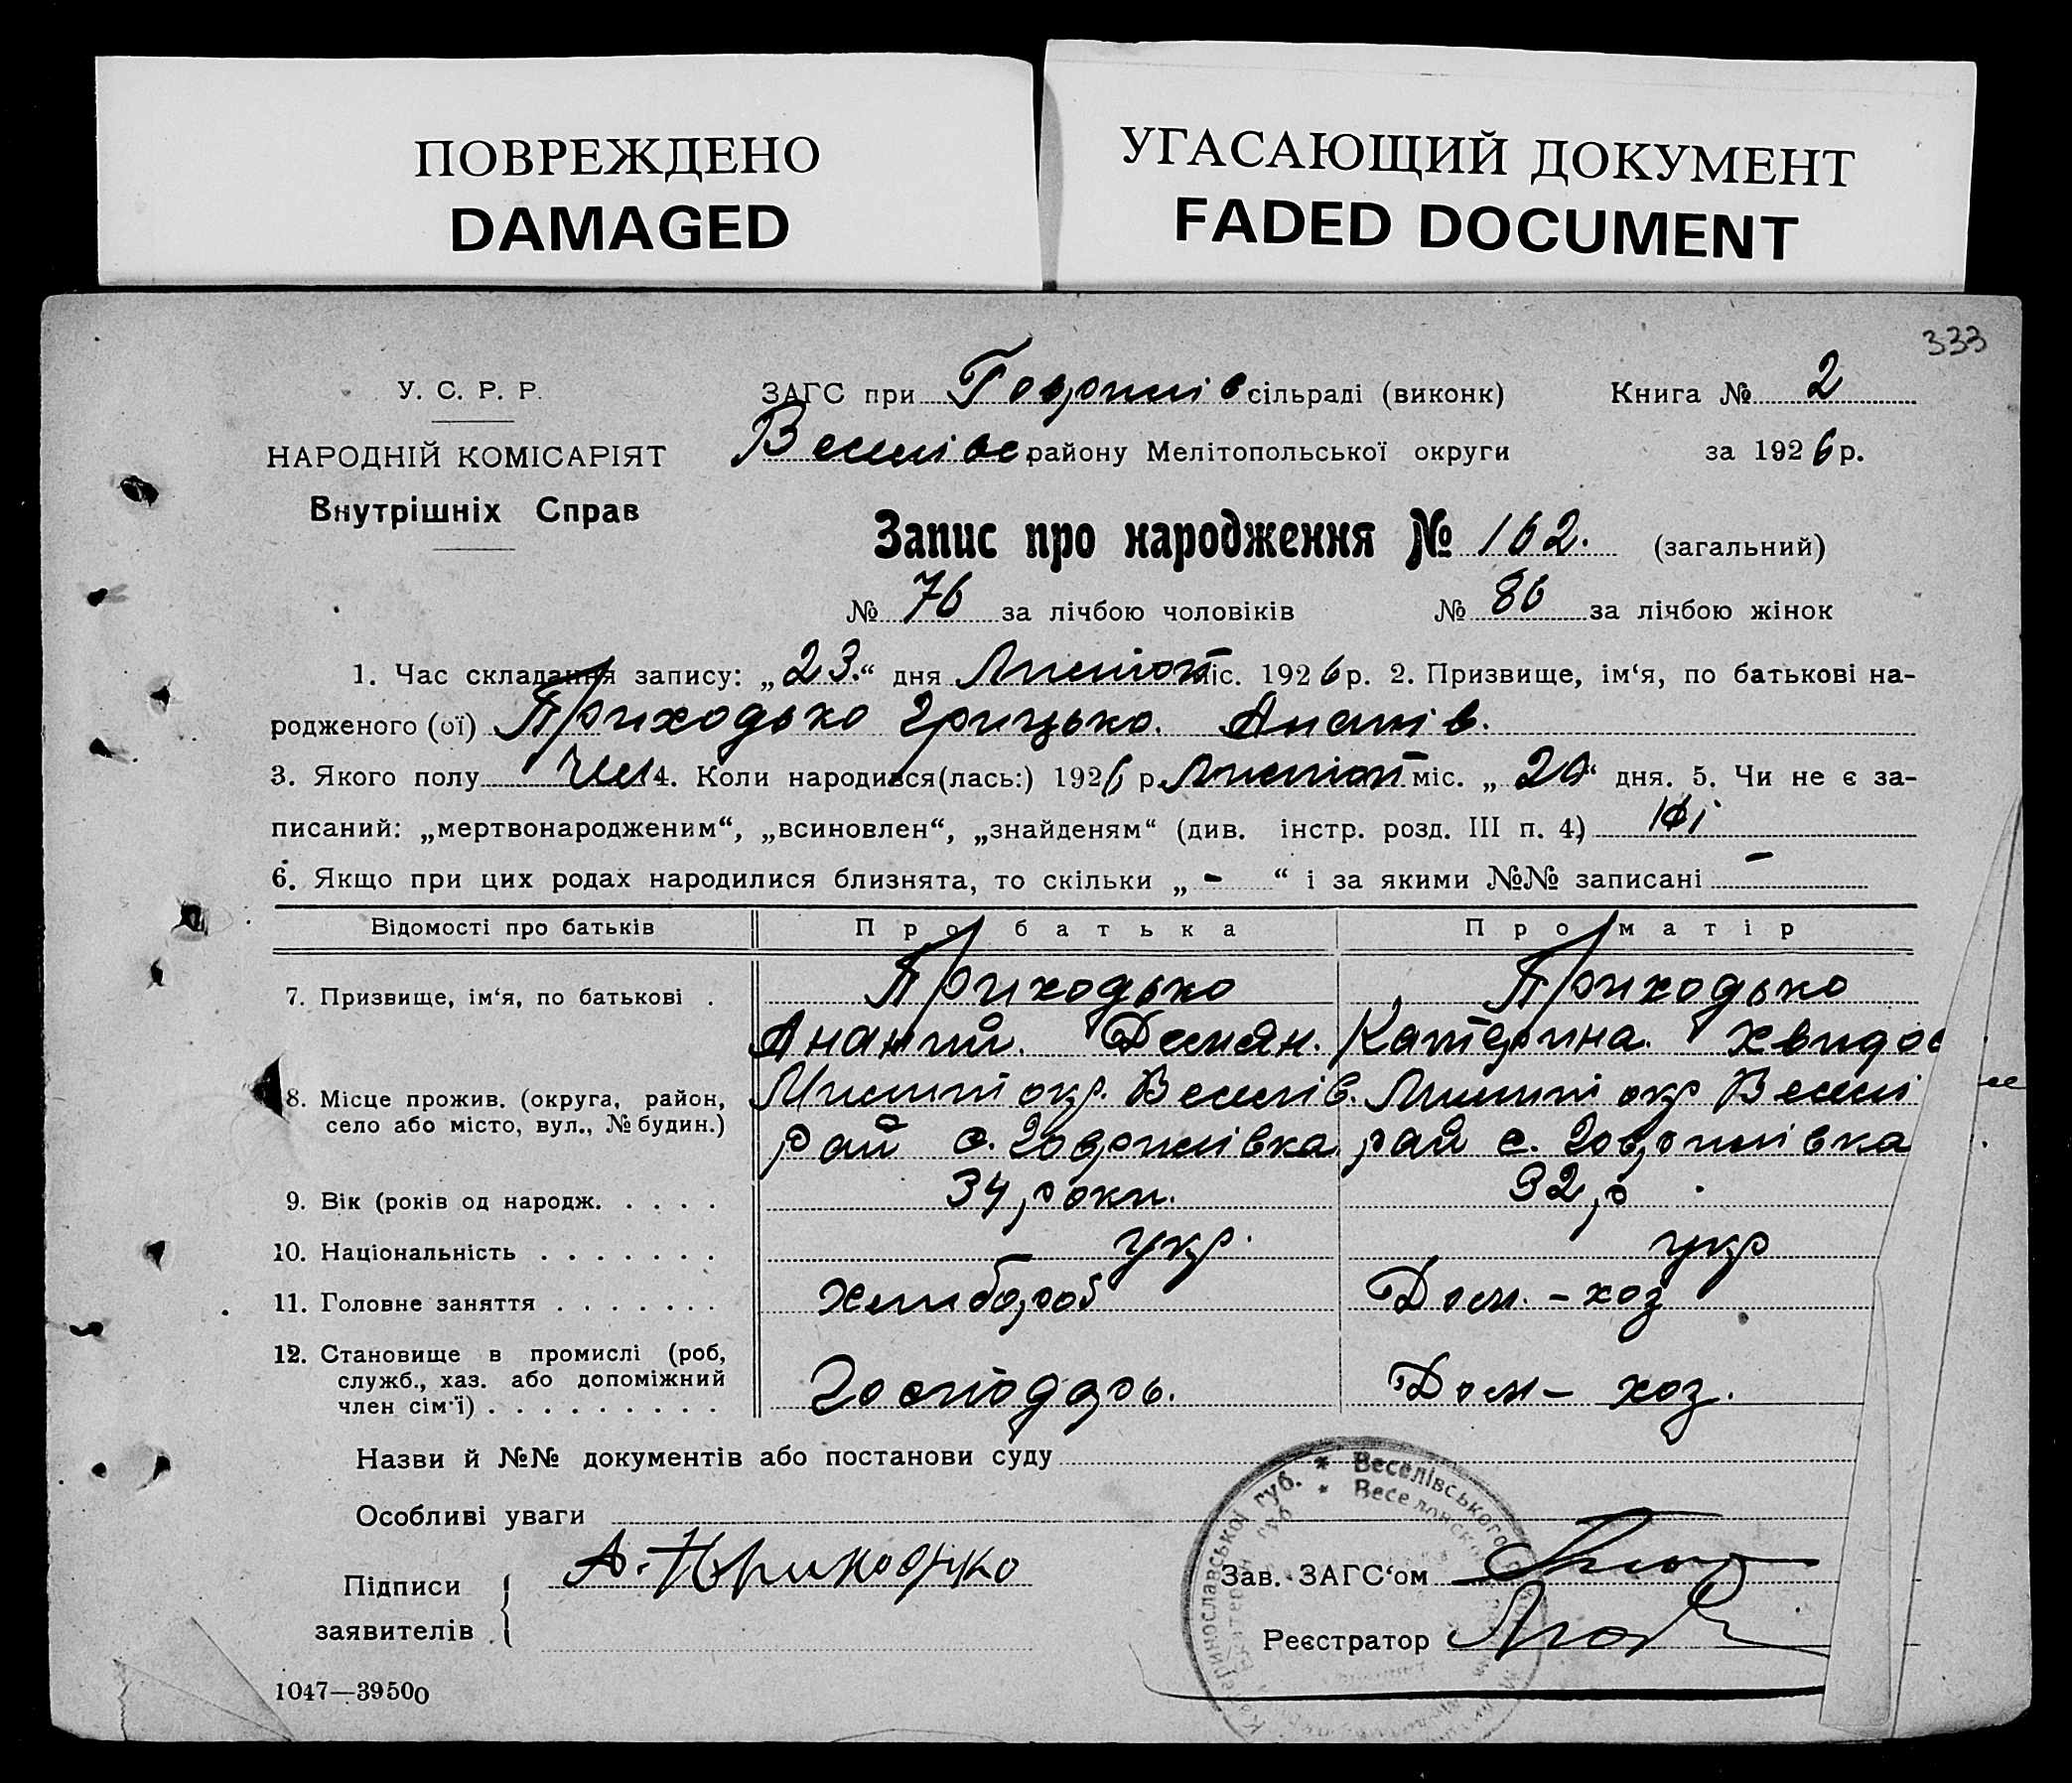 ПОВРЕЖДЕНО
DAMAGED
УГАСАЮЩИЙ ДОКУМЕНТ
FADED DOCUMENT
333
У. С. Р. Р.
НАРОДНІЙ КОМІСАРІЯТ
Внутрішніх Справ
ЗАГС при сільраді (виконк)
Книга № 2
Веселівс району Мелітопольської округи
за 1926 р.
Запис про народження № 162. (загальний)
№ 76 за лічбою чоловіків № 86 за лічбою жінок
1. Час складання запису: „23.“ дня Листоп міс. 1926 р. 2. Призвище, ім‘я, по батькові на-
родженого (ої) Приходько Грицько. Ананів.
3. Якого полу чол 4. Коли народився(лась:) 1926 р. Листоп міс. „20“ дня. 5. Чи не є за-
писаний: „мертвонародженим“, „всиновлен“, „знайденям“ (див. інстр. розд. III п. 4) Ні
6. Якщо при цих родах народилися близнята, то скільки „ - “ і за якими №№ записані –
Відомості про батьків Про батька Про матір
7. Призвище, ім‘я, по батькові . Приходько Приходько
Ананий. Демян. Катерина. Хвидос
8. Місце прожив. (округа, район, село або місто, вул., № будин.) Мелит окр. Веселів. Мелит окр Веселі
рай с. рай с.
9. Вік (років од народж. . . . . 34 роки. 32 р
10. Національність . . . . . . . укр. укр
11. Головне заняття . . . . . . . хлибороб Дом. – хоз
12. Становище в промислі (роб, служб., хаз. або допоміжний член сім‘ї) . . . . . . . . . Господарь. Дом – хоз.
Назви й №№ документів або постанови суду
Особливі уваги
Підписи заявителів А. Приходько
Зав. ЗАГС‘ом
Реєстратор
1047—39500
Катеринославської губ. * Веселівського